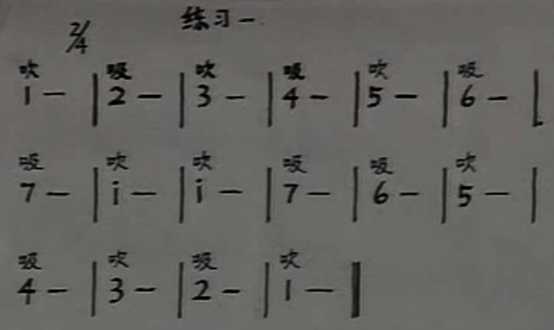 练习一
2/4
吹 吸 吹 吸 吹 吸
1 — | 2 — | 3 — | 4 — | 5 — | 6 — |
吸 吹 吹 吸 吸 吹
7 — | i — | i — | 7 — | 6 — | 5 — |
吸 吹 吸 吹
4 — | 3 — | 2 — | 1 — ‖